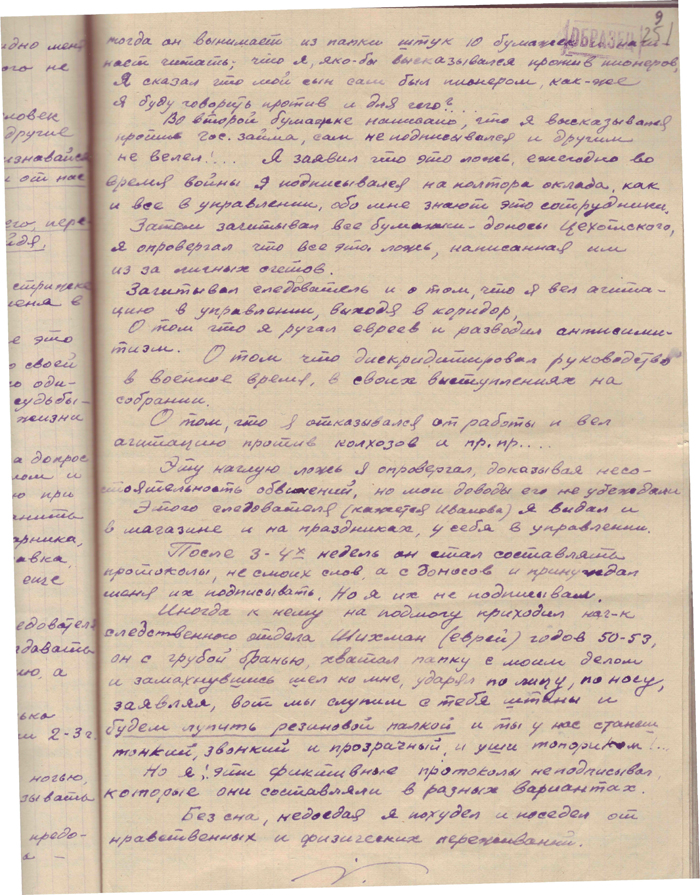 9
ОБРАЗЕЦ 251
тогда он вынимает из папки штук 10 бумажек и на-
чает читать; что я, яко-бы высказывался против пионеров,
Я сказал что мой сын сам был пионером, как-же
я буду говорить против и для чего?...
Во второй бумажке написано, что я высказывался
против гос. займа, сам не подписывался и другим
не велел!... Я заявил что это ложь, ежегодно во
время войны я подписывался на полтора оклада, как
и все в управлении, обо мне знают это сотрудники.
Затем зачитывал все бумажки-доносы Цехотского,
я опровергал что все это ложь, написанная им
из за личных счетов.
Зачитывал следователь и о том, что я вел агита-
цию в управлении, выходя в коридор,
О том что я ругал евреев и разводил антисими-
тизм. О том что дискридитировал руководство
в военное время, в своих выступлениях на
собрании.
О том, что я отказывался от работы и вел
агитацию против колхозов и пр. пр....
Эту наглую ложь я опровергал, доказывая несо-
стоятельность обвинений, но мои доводы его не убеждали
Этого следователя (кажется Иванова) я видал и
в магазине и на праздниках, у себя в управлении.
После 3-4х недель он стал составлять
протоколы, не смоих слов, а с доносов и принуждал
меня их подписывать. Но я их не подписывал.
Иногда к нему на подмогу приходил нач-к
следственного отдела Шихман (еврей) годов 50-53,
он с грубой бранью, хватал папку с моим делом
и замахнувшись шел ко мне, ударял по лицу, по носу,
заявляя, вот мы слупим с тебя штаны и
будем лупить резиновой палкой и ты у нас станешь
тонкий, звонкий и прозрачный, и уши топориком!...
Но я! эти фиктивные протоколы неподписывал,
которые они составляли в разных вариантах.
Без сна, недоедая я похудел и поседел от
нравственных и физических переживаний.
идно мент
ого не
еловек
другие
изнавайся
и от нас
его, пере-
йдя,
стрижке
меня в
е это
о своей
го оди-
судьбы-
жизни
а допрос
лом и
ю при
анить
арника,
авка,
еще
едователя
давать
ию, а
ько
ли 2-3 г.
ногью,
зывать
предо-